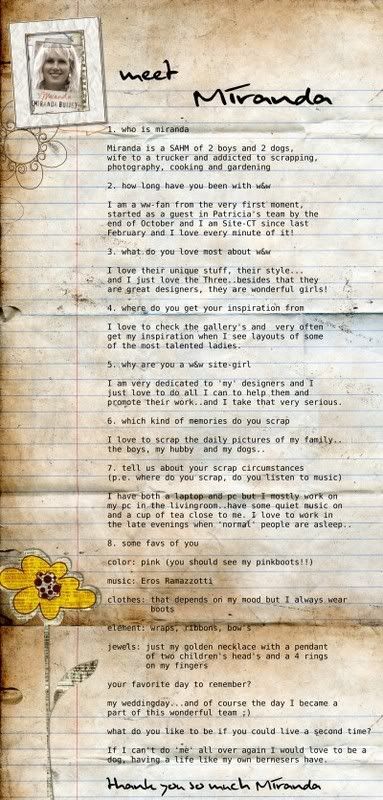 Miranda
meet
Miranda
1. who is miranda
Miranda is a SAHM of 2 boys and 2 dogs,
wife to a trucker and addicted to scrapping,
photography, cooking and gardening
2. how long have you been with w&w
I am a ww-fan from the very first moment,
started as a guest in Patricia's team by the
end of October and I am Site-CT since last
February and I love every minute of it!
3. what do you love most about w&w
I love their unique stuff, their style...
and I just love the Three..besides that they
are great designers, they are wonderful girls!
4. where do you get your inspiration from
I love to check the gallery's and very often
get my inspiration when I see layouts of some
of the most talented ladies.
5. why are you a w&w site-girl
I am very dedicated to 'my' designers and I
just love to do all I can to help them and
promote their work..and I take that very serious.
6. which kind of memories do you scrap
I love to scrap the daily pictures of my family..
the boys, my hubby and my dogs..
7. tell us about your scrap circumstances
(p.e. where do you scrap, do you listen to music)
I have both a laptop and pc but I mostly work on
my pc in the livingroom..have some quiet music on
and a cup of tea close to me. I love to work in
the late evenings when 'normal' people are asleep..
8. some favs of you
color: pink (you should see my pinkboots!!)
music: Eros Ramazzotti
clothes: that depends on my mood but I always wear
boots
element: wraps, ribbons, bow's
jewels: just my golden necklace with a pendant
of two children's head's and a 4 rings
on my fingers
your favorite day to remember?
my weddingday...and of course the day I became a
part of this wonderful team ;)
what do you like to be if you could live a second time?
If I can't do 'me' all over again I would love to be a
dog, having a life like my own bernesers have.
thank you so much Miranda